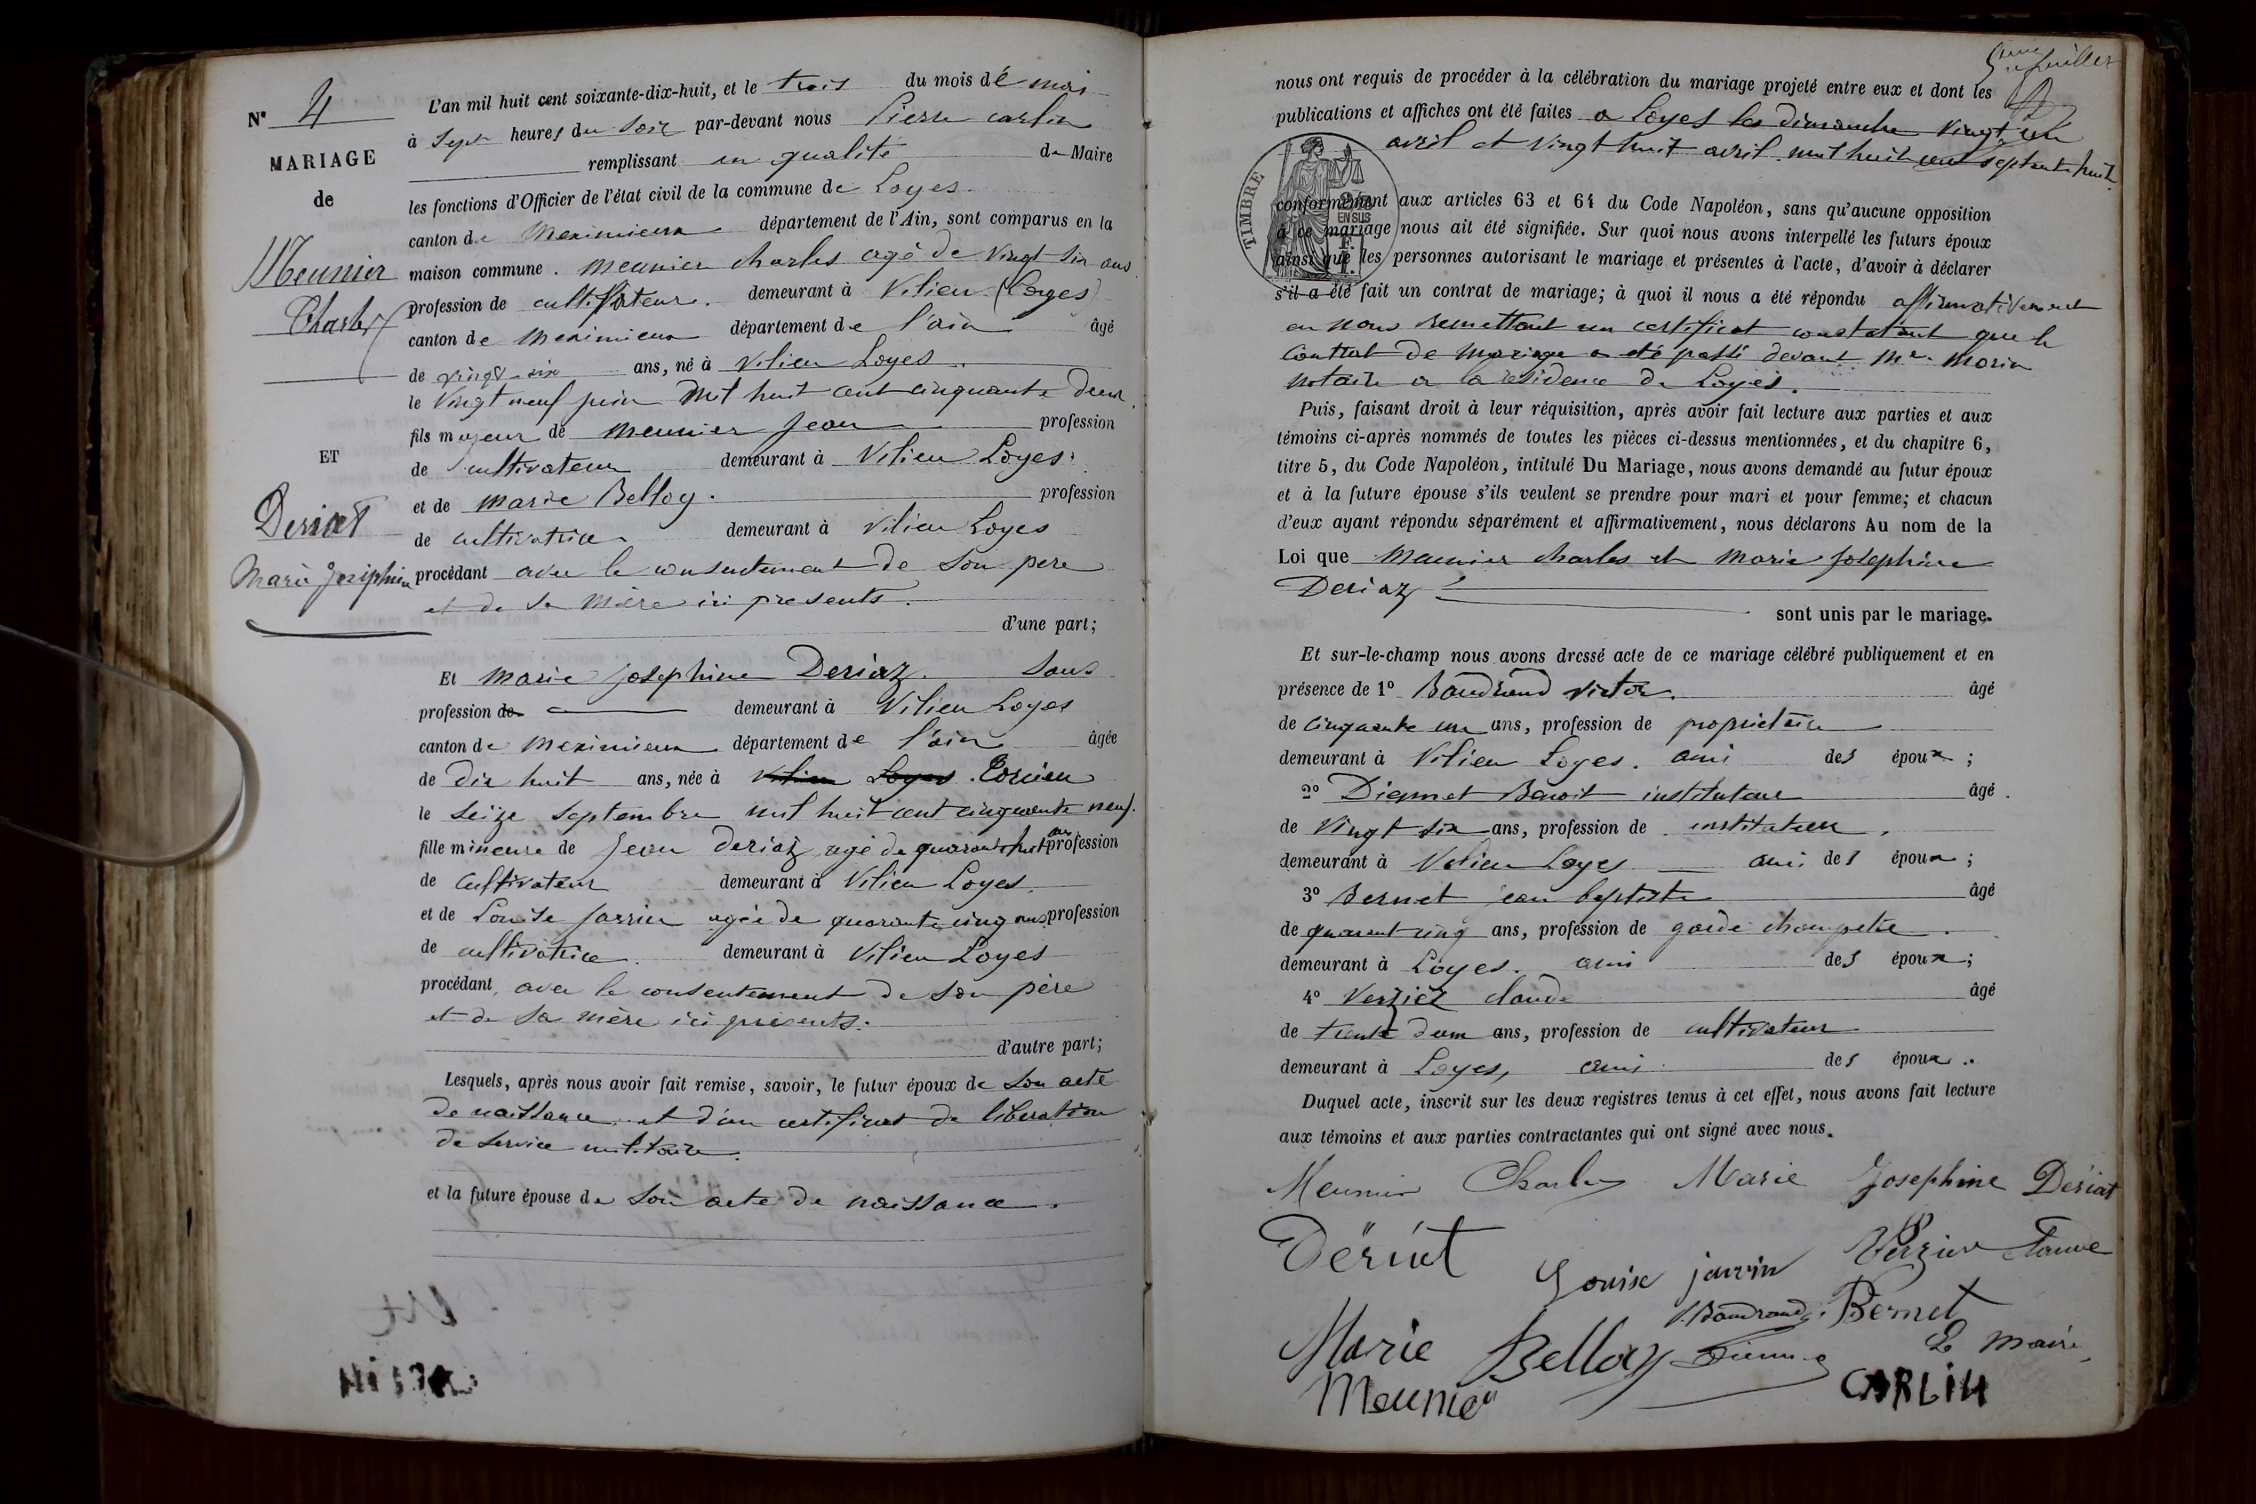 N° 4
MARIAGE
de
Meunier
Charles
ET
Deriat
Marie Josiphine
L'an mil huit cent soixante-dix-huit, et le trois du mois de mai
à sept heures du soir par-devant nous Pierre carlin
remplissant en qualité de Maire
les fonctions d'Officier de l'état civil de la commune de Loyes.
canton de meximieux département de l'Ain, sont comparus en la
maison commune. meunier charles agé de vingt six ans
profession de cultivateur. demeurant à Vilieu (Loyes)
canton de meximieux département de l'ain âgé
de vingt six ans, né à Vilieu Loyes
le Vingt neuf juin mil huit cent cinquante deux.
fils majeur de meunier Jean profession
de cultivateur demeurant à Vilieu Loyes.
et de marie Belloy. profession
de cultivatrice demeurant à Vilieu Loyes
procédant avec le consentement de son pere
et de sa mère ici presents.
d'une part;
Et marie josephine Deriaz. Sans
profession de demeurant à Vilieu Loyes
canton de meximieux département de l'ain âgée
de dix huit ans, née à Vilieu Loyes.
le seize septembre mil huit cent cinquante neuf.
fille mineure de Jean deriaz agé de quarante huit ans profession
de cultivateur demeurant à Vilieu Loyes.
et de Louise Jarrin agée de quarante cinq ans profession
de cultivatrice. demeurant à Vilieu Loyes
procédant avec le consentement de son père
et de sa mère ici présents.
d'autre part;
Lesquels, après nous avoir fait remise, savoir, le futur époux de son acte
de naissance et d'un certificat de libération
de service militaire.
et la future épouse de son acte de naissance.
nous ont requis de procéder à la célébration du mariage projeté entre eux et dont les
publications et affiches ont été faites a Loyes les dimanche vingt un
avril et vingt huit avril mil huit cent septante huit.
TIMBRE
2/10
EN SUS
conformément aux articles 63 et 64 du Code Napoléon, sans qu'aucune opposition
à ce mariage nous ait été signifiée. Sur quoi nous avons interpellé les futurs époux
ainsi que les personnes autorisant le mariage et présentes à l'acte, d'avoir à déclarer
s'il a été fait un contrat de mariage; à quoi il nous a été répondu affirmativement
en nous remettant un certificat constatant que le
contrat de mariage a été passé devant Me. Morin
notaire a la résidence de Loyes.
Puis, faisant droit à leur réquisition, après avoir fait lecture aux parties et aux
témoins ci-après nommés de toutes les pièces ci-dessus mentionnées, et du chapitre 6,
titre 5, du Code Napoléon, intitulé Du Mariage, nous avons demandé au futur époux
et à la future épouse s'ils veulent se prendre pour mari et pour femme; et chacun
d'eux ayant répondu séparément et affirmativement, nous déclarons Au nom de la
Loi que Meunier charles et Marie Josephine
Deriaz
sont unis par le mariage.
Et sur-le-champ nous avons dressé acte de ce mariage célébré publiquement et en
présence de 1° Baudrand victor. âgé
de cinquante un ans, profession de propriétaire
demeurant à Vilieu Loyes. ami des époux;
2° Benoit instituteur âgé
de Vingt six ans, profession de instituteur.
demeurant à Vilieu Loyes ami des époux;
3° Bernet jean baptiste âgé
de quarant cinq ans, profession de garde champetre.
demeurant à Loyes. ami des époux;
4° Verzier claude âgé
de trente deux ans, profession de cultivateur
demeurant à Loyes, ami des époux.
Duquel acte, inscrit sur les deux registres tenus à cet effet, nous avons fait lecture
aux témoins et aux parties contractantes qui ont signé avec nous.
Meunier Charles Marie Josephine Dériat
Dëriat Louise jarrin Verzier Claude
V. Baudrand. Bernet
Marie Belloy Le Maire,
Meunier CARLIN